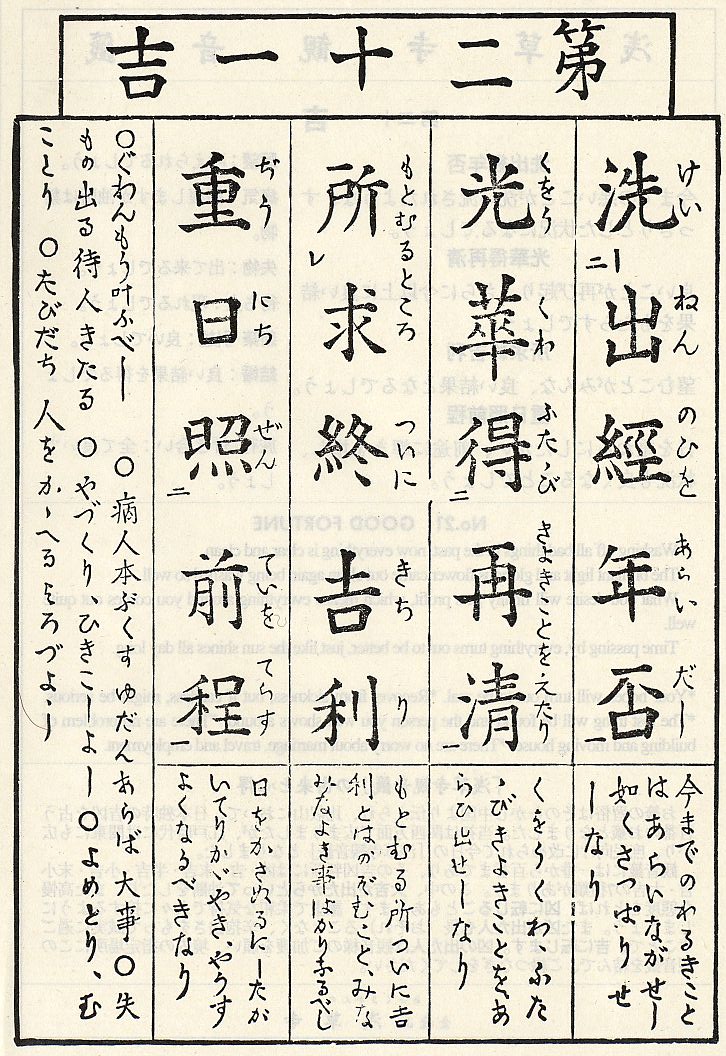 第二十一吉
けい ねん のひを あらい だ
洗出經年否
今までのわるきこと
はあらいながせし
如くさっぱりせ
しなり
くをう くわ ふたゝび きよきことをえたり
光華得再清
くをうくわふた
ゝびきよきことを
なり
もとむるところ ついに きち り
所求終吉利
もとむる所ついに吉
利とは みな
みなよき事 べし
ぢう にち ぜん ていを てらす
重日照前程
日をかさぬるにしたが
いてりかゞやき、やうす
よくなるべきなり
○ぐわんもう叶ふべし ○病人本ぶくすゆだんあらば大事○失
もの出る待人きたる ○やづくり、ひきこしよし○よめとり、む
ことり ○たびだち 人をかゝへるよろづよし